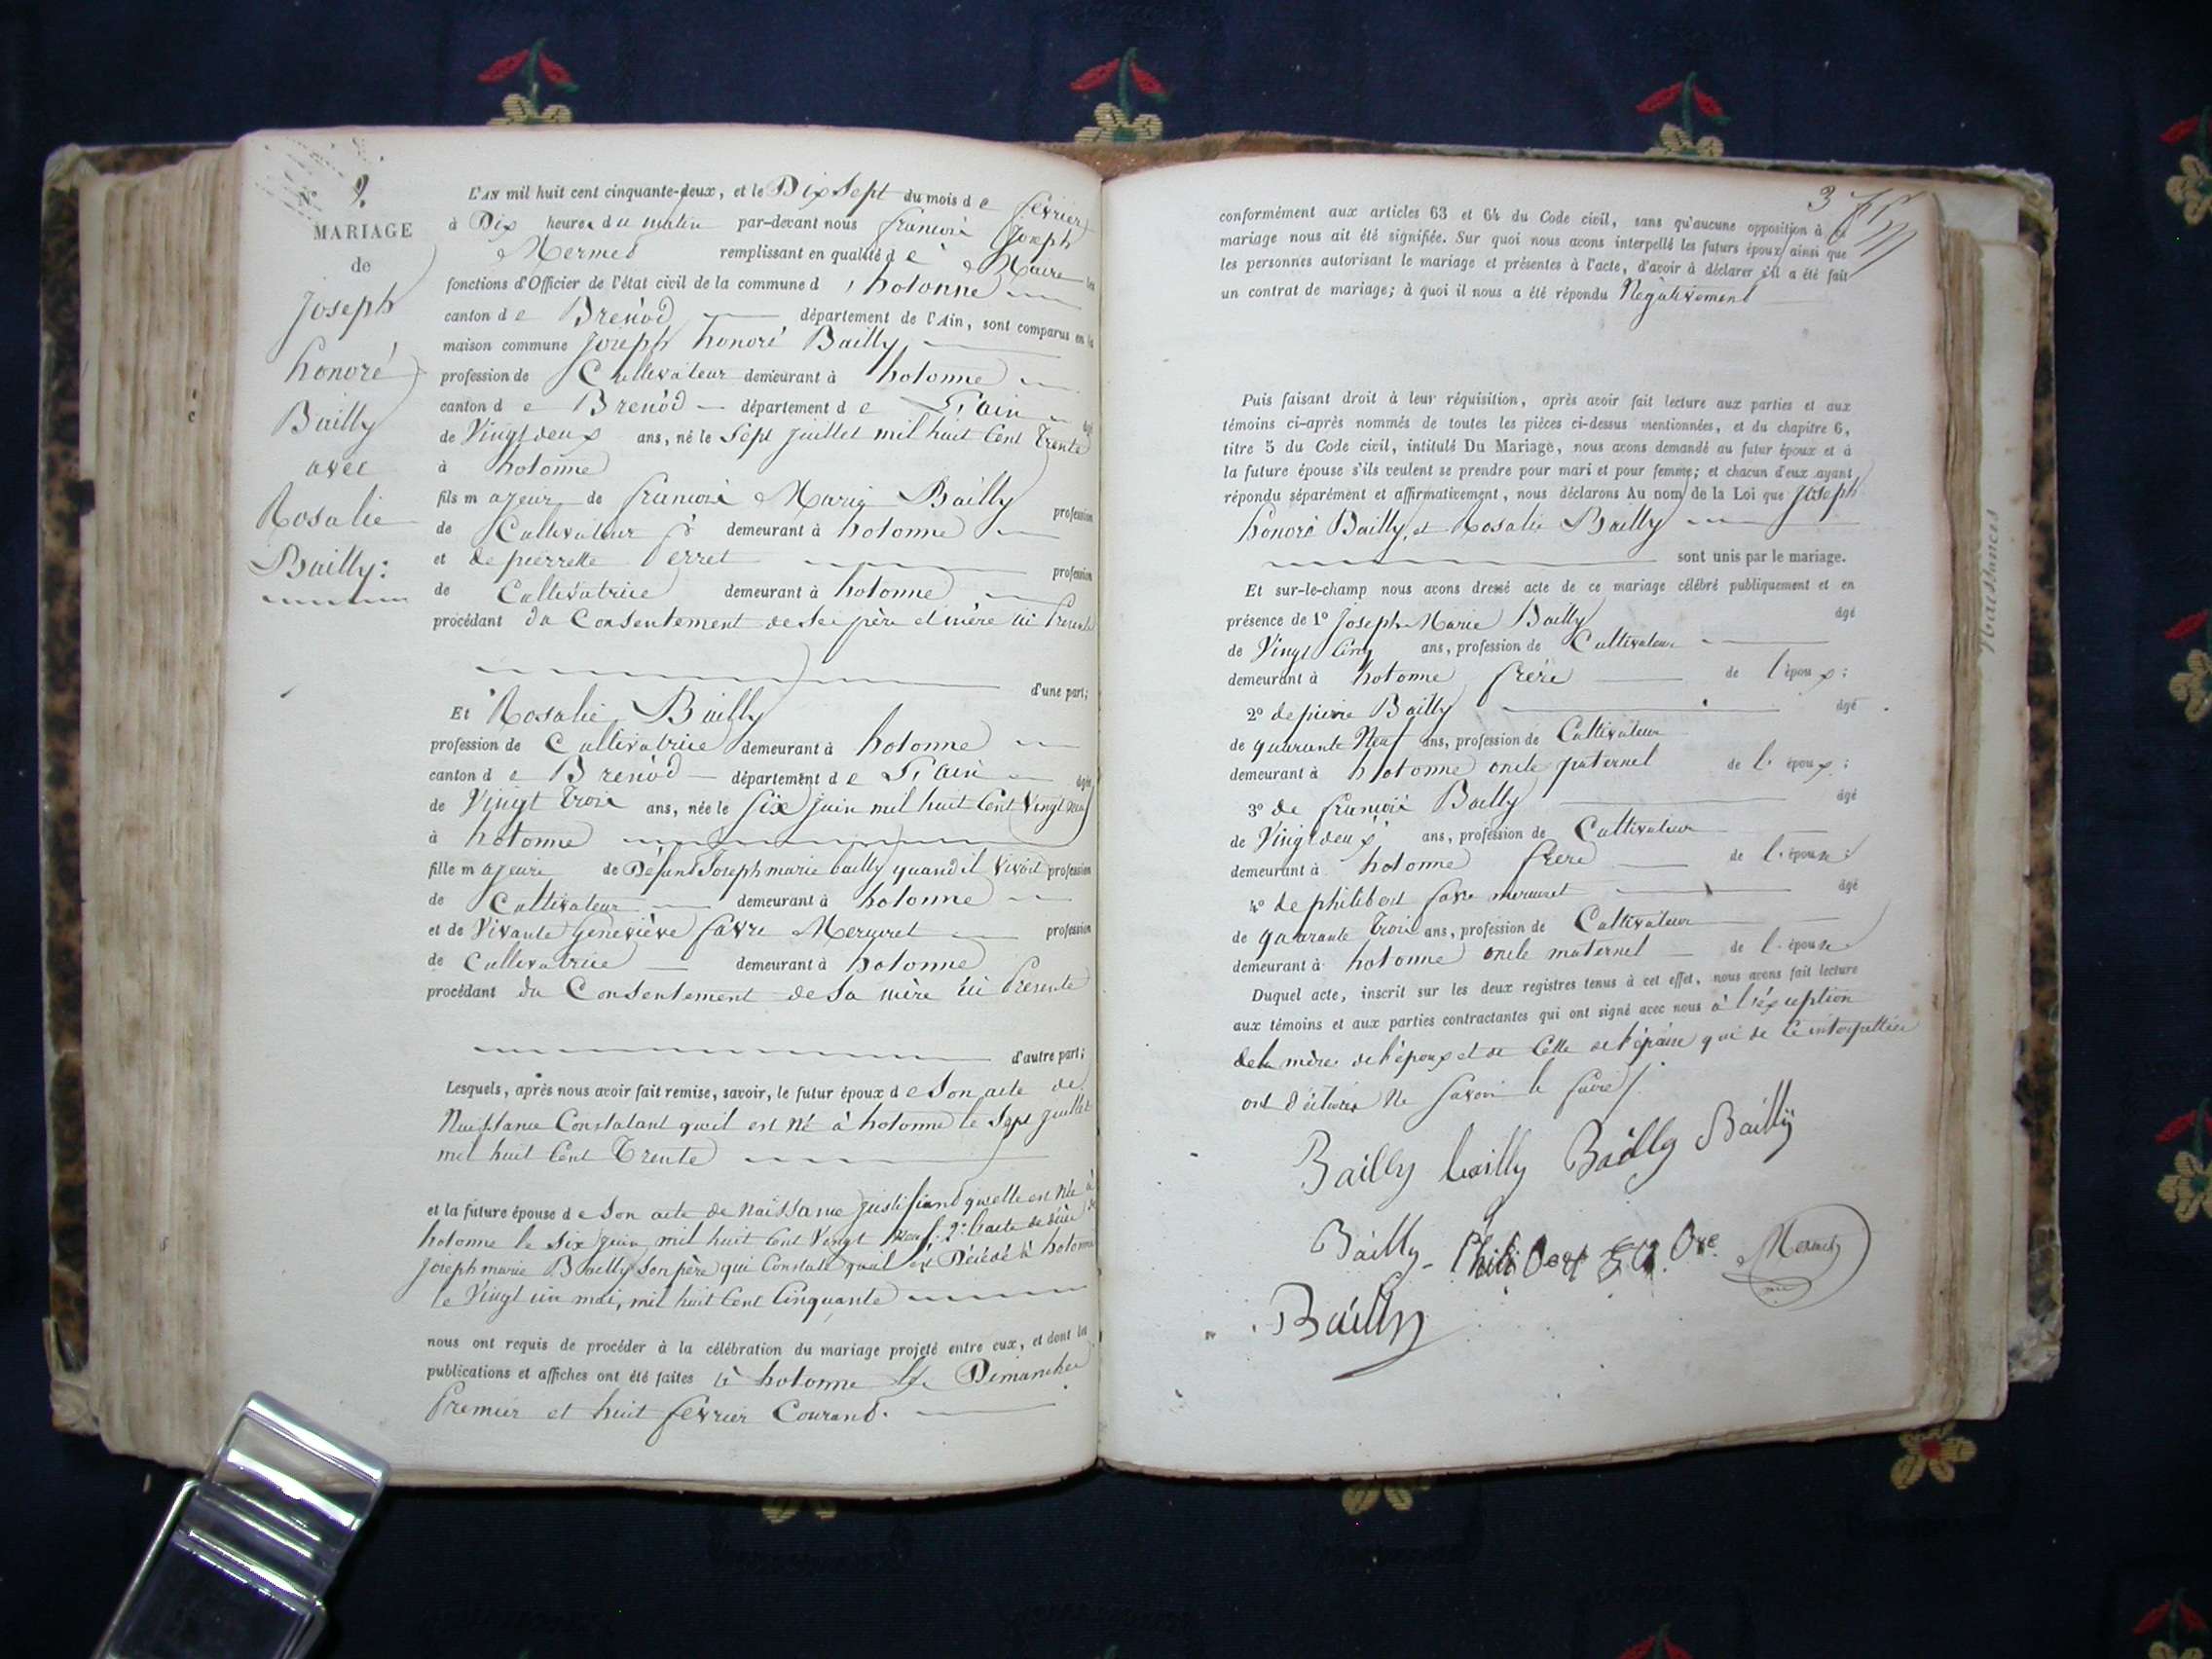 N° 2.
MARIAGE
de
Joseph
honoré
Bailly
avec
Rosalie
Bailly:
L'AN mil huit cent cinquante-deux, et le Dix Sept du mois de février
à Dix heures du matin par-devant nous françois Joseph
Mermet remplissant en qualité de Maire les
fonctions d'Officier de l'état civil de la commune d'hotonne
canton de Brenòd département de l'Ain, sont comparus en la
maison commune Joseph honoré Bailly
profession de Cultivateur demeurant à hotonne
canton de Brenòd département de L'ain âgé
de Vingt deux ans, né le Sept juillet mil huit Cent Trente
à hotonne
fils majeur de françois Marie Bailly profession
de Cultivateur demeurant à hotonne
et de pierrette Perret profession
de Cultivatrice demeurant à hotonne
procédant du Consentement de Ses père et mère ici Presents
d'une part;
Et Rosalie Bailly
profession de Cultivatrice demeurant à hotonne
canton de Brenòd département de L'ain âgée
de Vingt Trois ans, née le Six juin mil huit Cent Vingt neuf
à hotonne
fille majeure de Défunt Joseph marie bailly quand il Vivoit profession
de Cultivateur demeurant à hotonne
et de Vivante Geneviève favre Mercuret profession
de Cultivatrice demeurant à hotonne
procédant du Consentement de Sa mère ici Presente
d'autre part;
Lesquels, après nous avoir fait remise, savoir, le futur époux de Son acte de
Naissance Constatant qu'il est Né à hotonne le Sept juillet
mil huit Cent Trente
et la future épouse de Son acte de Naissance justifiant quelle est Née à
hotonne le Six juin mil huit Cent Vingt Neuf: 2° l'acte de décès de
joseph marie Bailly Son père qui Constate quil est Décédé à hotonne
le Vingt un mai, mil huit Cent Cinquante
nous ont requis de procéder à la célébration du mariage projeté entre eux, et dont les
publications et affiches ont été faites à hotonne les Dimanches
Premier et huit février Courant.
3
conformément aux articles 63 et 64 du Code civil, sans qu'aucune opposition à ce
mariage nous ait été signifiée. Sur quoi nous avons interpellé les futurs époux ainsi que
les personnes autorisant le mariage et présentes à l'acte, d'avoir à déclarer s'il a été fait
un contrat de mariage; à quoi il nous a été répondu Négativement
Puis faisant droit à leur réquisition, après avoir fait lecture aux parties et aux
témoins ci-après nommés de toutes les pièces ci-dessus mentionnées, et du chapitre 6,
titre 5 du Code civil, intitulé Du Mariage, nous avons demandé au futur époux et à
la future épouse s'ils veulent se prendre pour mari et pour femme; et chacun d'eux ayant
répondu séparément et affirmativement, nous déclarons Au nom de la Loi que Joseph
honoré Bailly, et Rosalie Bailly
sont unis par le mariage.
Et sur-le-champ nous avons dressé acte de ce mariage célébré publiquement et en
présence de 1° Joseph Marie Bailly âgé
de Vingt Cinq ans, profession de Cultivateur
demeurant à hotonne frère de l'époux:
2° de pierre Bailly âgé
de quarante Neuf ans, profession de Cultivateur
demeurant à hotonne oncle paternel de l'époux:
3° de françois Bailly âgé
de Vingt deux ans, profession de Cultivateur
demeurant à hotonne frère de l'épouse:
4° de philibert favre mercuret âgé
de quarante Trois ans, profession de Cultivateur
demeurant à hotonne oncle maternel de l'épouse
Duquel acte, inscrit sur les deux registres tenus à cet effet, nous avons fait lecture
aux témoins et aux parties contractantes qui ont signé avec nous à l'éxception
de la mère de l'époux et de Celle de l'épouse qui de Ce interpellées
ont déclarées Ne Savoir le faire
Bailly bailly Bailly Bailly
Bailly Mermet
Bailly
Naissances